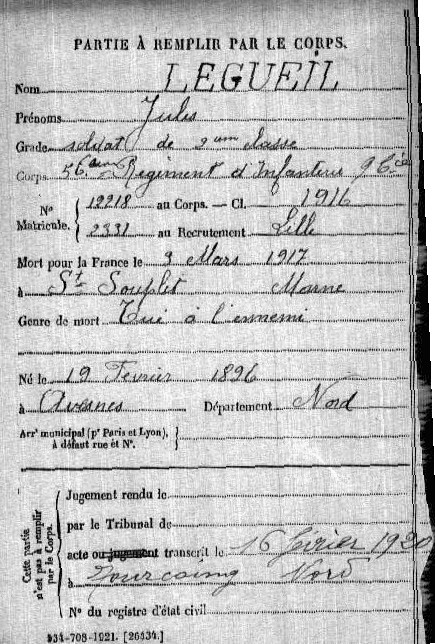 PARTIE À REMPLIR PAR LE CORPS.
Nom LEGUEIL
Prénoms Jules
Grade soldat de 2eme classe
Corps 56eme Régiment d'Infanterie 9 Cie
Nº Matricule. { 12218 au Corps. — Cl. 1916
2331 au Recrutement Lille
Mort pour la France le 3 Mars 1917
à St Souplet Marne
Genre de mort Tué à l'ennemi
Né le 19 Février 1896
à Avesnes Département Nord
Arrt municipal (pr Paris et Lyon), à défaut rue et Nº.
Cette partie n'est pas à remplir par le Corps.
Jugement rendu le
par le Tribunal de
acte ou jugement transcrit le 16 février 1920
à Tourcoing Nord
Nº du registre d'état civil
534-708-1921. [26434.]